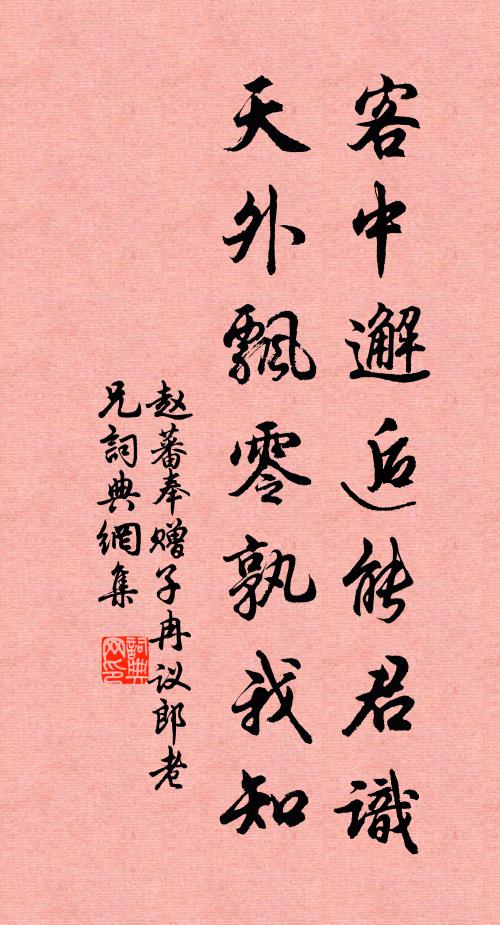 客中邂逅能君識
天外飄零孰我知
赵蕃奉赠子冉议郎老
兄詞典網集
詞典网印